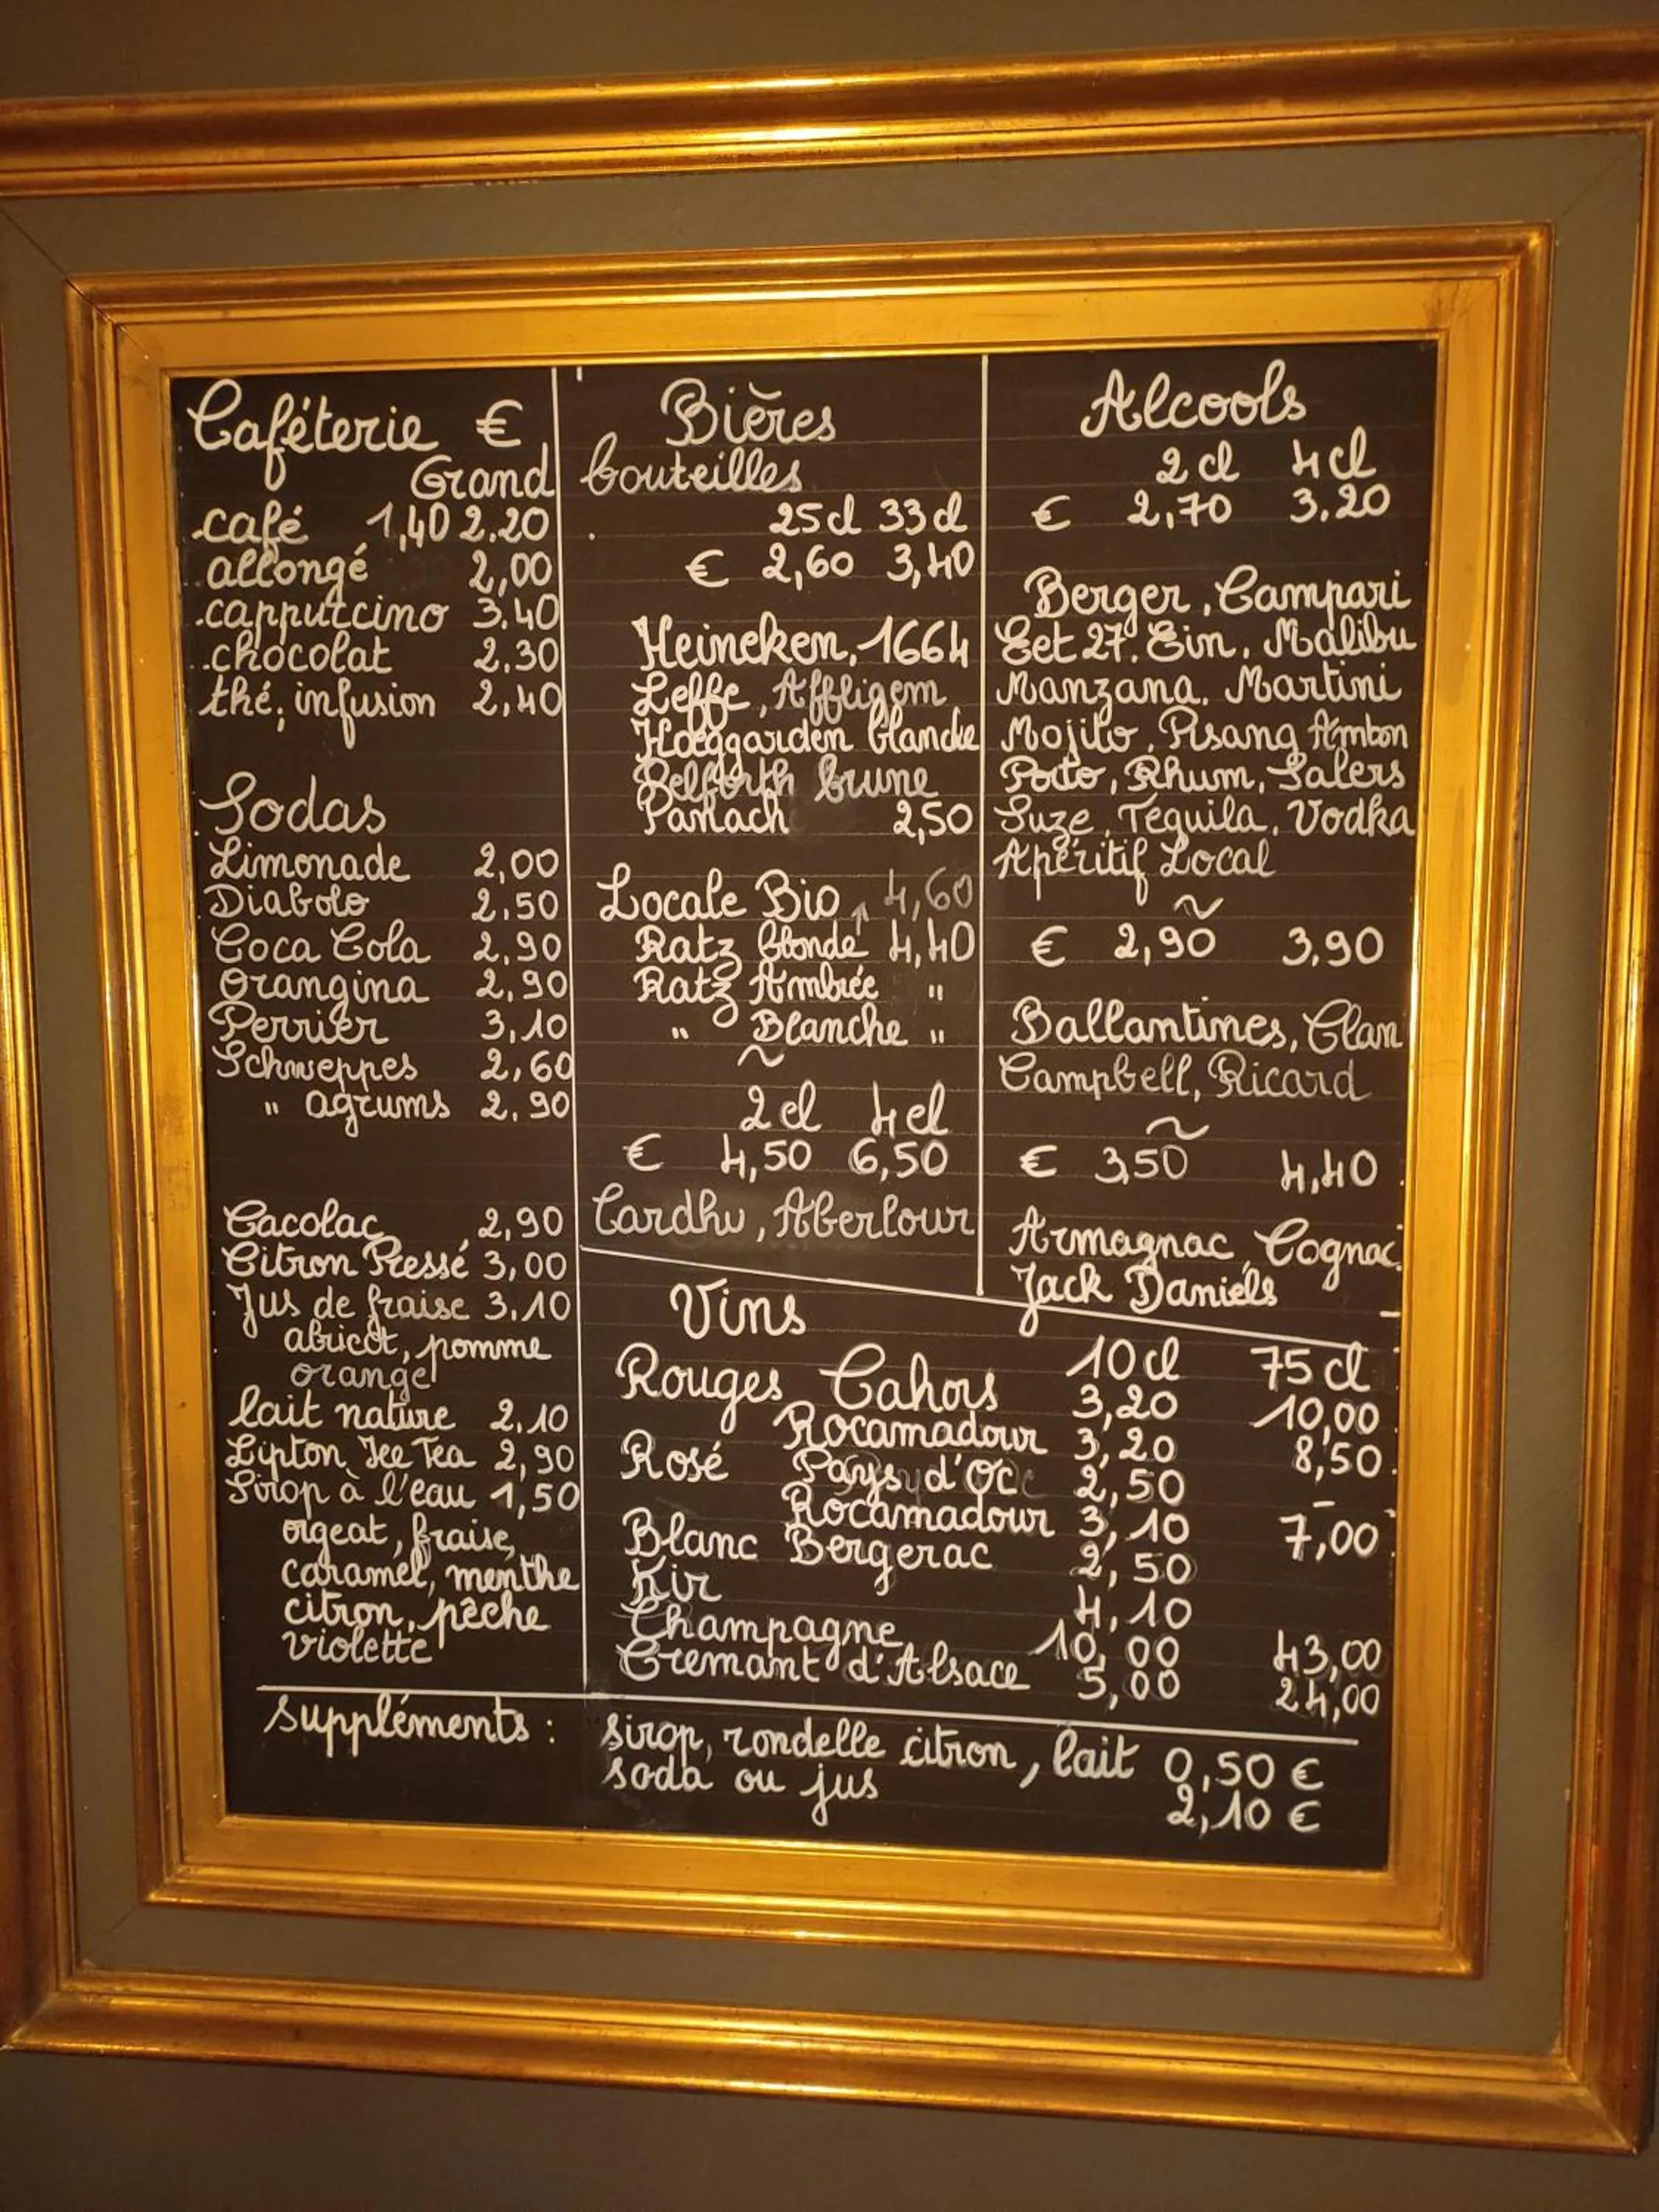 Caféterie €
Grand
café 1,40 2.20
allongé 2,00
cappuccino 3.40
chocolat 2.30
thé, infusion 2,40
Sodas
Limonade 2,00
Diabolo 2.50
Coca Cola 2.90
Orangina 2,90
Perrier 3,10
Schweppes 2,60
" agrums 2.90
Cacolac 2,90
Citron Pressé 3,00
Jus de fraise 3.10
abricot, pomme
orange
lait nature 2.10
Lipton Ice Tea 2,90
Sirop à l'eau 1,50
orgeat, fraise,
caramel, menthe
citron, pêche
violette
Bières
bouteilles
25cl 33cl
€ 2,60 3,40
Heineken, 1664
Leffe, Affligem
Hoeggarden blanche
Belforth brune
Panach 2,50
Locale Bio ↑ 4,60
Ratz blonde 4,40
Ratz Ambrée "
" Blanche "
~
2cl 4cl
€ 4,50 6,50
Cardhu, Aberlour
Alcools
2cl 4cl
€ 2,70 3.20
Berger, Campari
Get 27. Gin, Malibu
Manzana, Martini
Mojito, Pisang Ambon
Porto, Rhum, Salers
Suze, Tequila, Vodka
Apéritif Local
~
€ 2,90 3,90
Ballantines, Clan
Campbell, Ricard
~
€ 3,50 4,40
Armagnac, Cognac
Jack Daniels
Vins
10cl 75cl
Rouges Cahors 3,20 10,00
Rocamadour 3,20 8,50
Rosé Pays d'Oc 2,50 -
Rocamadour 3,10 7,00
Blanc Bergerac 2,50
Kir 4,10
Champagne 10,00 43,00
Cremant d'Alsace 5,00 24,00
suppléments : sirop, rondelle citron, lait 0,50 €
soda ou jus 2,10 €